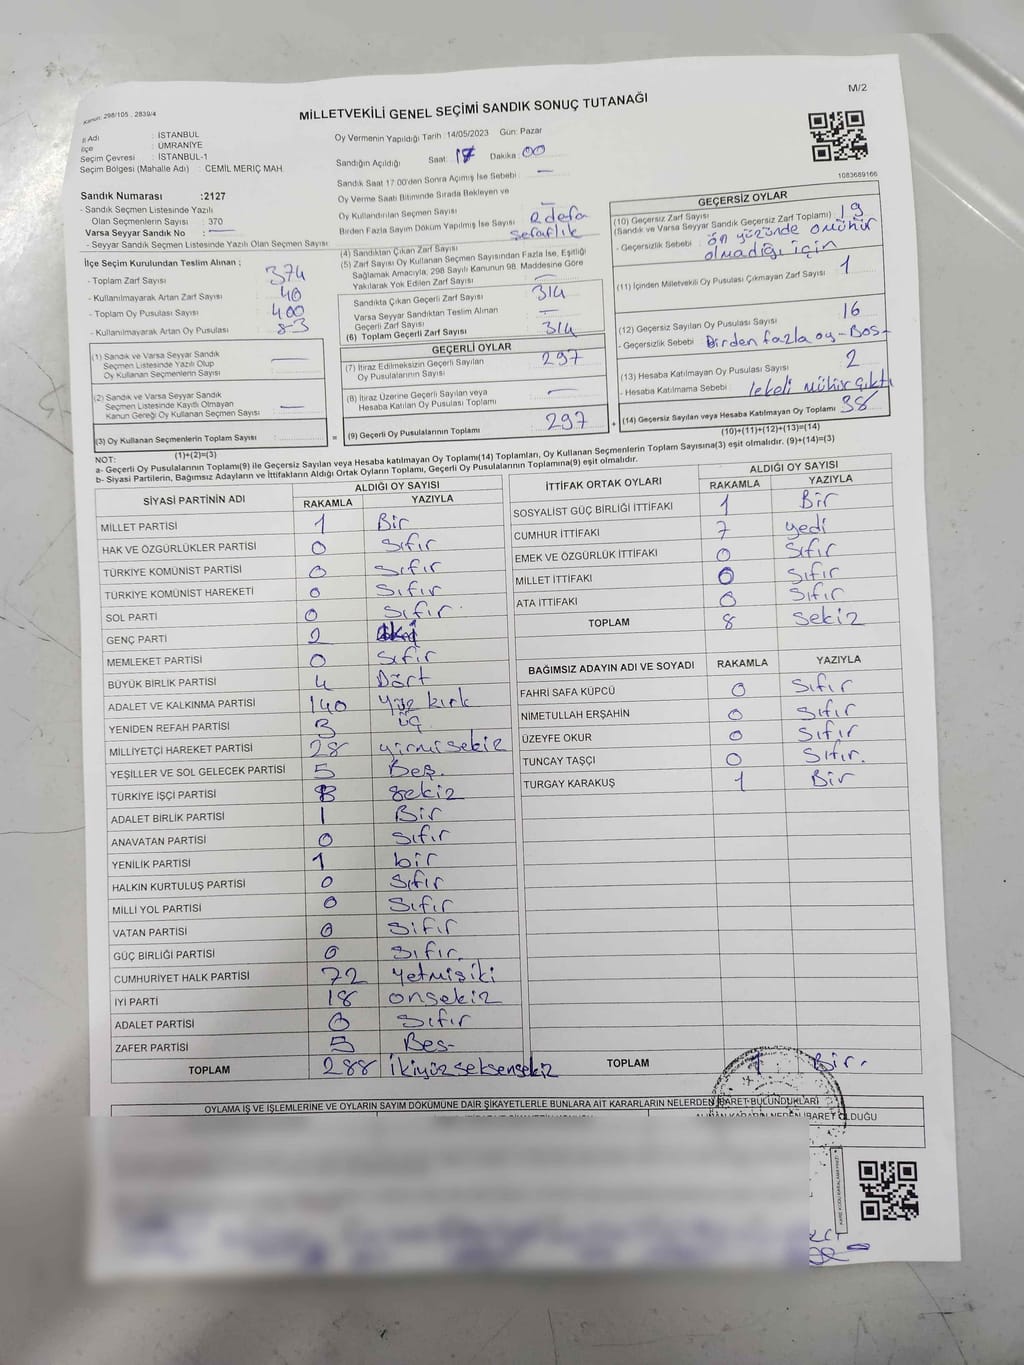 Kanun: 298/105 , 2839/4
M/2
MİLLETVEKİLİ GENEL SEÇİMİ SANDIK SONUÇ TUTANAĞI
İl Adı : İSTANBUL
İlçe : ÜMRANİYE
Seçim Çevresi : İSTANBUL-1
Seçim Bölgesi (Mahalle Adı) : CEMİL MERİÇ MAH.
Sandık Numarası :2127
- Sandık Seçmen Listesinde Yazılı
Olan Seçmenlerin Sayısı : 370
Varsa Seyyar Sandık No : —
- Seyyar Sandık Seçmen Listesinde Yazılı Olan Seçmen Sayısı
İlçe Seçim Kurulundan Teslim Alınan ;
- Toplam Zarf Sayısı : 374
- Kullanılmayarak Artan Zarf Sayısı : 40
- Toplam Oy Pusulası Sayısı : 400
- Kullanılmayarak Artan Oy Pusulası : 83
(1) Sandık ve Varsa Seyyar Sandık
Seçmen Listesinde Yazılı Olup
Oy Kullanan Seçmenlerin Sayısı : —
(2) Sandık ve Varsa Seyyar Sandık
Seçmen Listesinde Kayıtlı Olmayan
Kanun Gereği Oy Kullanan Seçmen Sayısı : —
(3) Oy Kullanan Seçmenlerin Toplam Sayısı :
(1)+(2)=(3)
Oy Vermenin Yapıldığı Tarih : 14/05/2023 Gün: Pazar
Sandığın Açıldığı Saat: 17 Dakika: 00
Sandık Saat 17:00'den Sonra Açımış İse Sebebi : —
Oy Verme Saati Bitiminde Sırada Bekleyen ve
Oy Kullandırılan Seçmen Sayısı : —
Birden Fazla Sayım Döküm Yapılmış İse Sayısı : 2 defa
(4) Sandıktan Çıkan Zarf Sayısı
(5) Zarf Sayısı Oy Kullanan Seçmen Sayısından Fazla İse, Eşitliği
Sağlamak Amacıyla; 298 Sayılı Kanunun 98. Maddesine Göre
Yakılarak Yok Edilen Zarf Sayısı : —
Sandıkta Çıkan Geçerli Zarf Sayısı : 314
Varsa Seyyar Sandıktan Teslim Alınan
Geçerli Zarf Sayısı : —
(6) Toplam Geçerli Zarf Sayısı : 314
GEÇERLİ OYLAR
(7) İtiraz Edilmeksizin Geçerli Sayılan
Oy Pusulalarının Sayısı : 297
(8) İtiraz Üzerine Geçerli Sayılan veya
Hesaba Katılan Oy Pusulası Toplamı : —
= (9) Geçerli Oy Pusulalarının Toplamı : 297 +
1083689166
GEÇERSİZ OYLAR
(10) Geçersiz Zarf Sayısı : 19
(Sandık ve Varsa Seyyar Sandık Geçersiz Zarf Toplamı)
- Geçersizlik Sebebi : ön yüzünde mühür
olmadığı için
(11) İçinden Milletvekili Oy Pusulası Çıkmayan Zarf Sayısı : 1
(12) Geçersiz Sayılan Oy Pusulası Sayısı : 16
- Geçersizlik Sebebi : Birden fazla oy-Boş
(13) Hesaba Katılmayan Oy Pusulası Sayısı : 2
- Hesaba Katılmama Sebebi : lekeli mühür çıktı
(14) Geçersiz Sayılan veya Hesaba Katılmayan Oy Toplamı : 38
(10)+(11)+(12)+(13)=(14)
NOT:
a- Geçerli Oy Pusulalarının Toplamı(9) ile Geçersiz Sayılan veya Hesaba Katılmayan Oy Toplamı(14) Toplamları, Oy Kullanan Seçmenlerin Toplam Sayısına(3) eşit olmalıdır. (9)+(14)=(3)
b- Siyasi Partilerin, Bağımsız Adayların ve İttifakların Aldığı Ortak Oyların Toplamı, Geçerli Oy Pusulalarının Toplamına(9) eşit olmalıdır.
SİYASİ PARTİNİN ADI ALDIĞI OY SAYISI
RAKAMLA YAZIYLA
MİLLET PARTİSİ 1 Bir
HAK VE ÖZGÜRLÜKLER PARTİSİ 0 sıfır
TÜRKİYE KOMÜNİST PARTİSİ 0 sıfır
TÜRKİYE KOMÜNİST HAREKETİ 0 sıfır
SOL PARTİ 0 sıfır
GENÇ PARTİ 2
MEMLEKET PARTİSİ 0 sıfır
BÜYÜK BİRLİK PARTİSİ 4 Dört
ADALET VE KALKINMA PARTİSİ 140 yüz kırk
YENİDEN REFAH PARTİSİ 3 üç
MİLLİYETÇİ HAREKET PARTİSİ 28 yirmi sekiz
YEŞİLLER VE SOL GELECEK PARTİSİ 5 Beş.
TÜRKİYE İŞÇİ PARTİSİ 8 sekiz
ADALET BİRLİK PARTİSİ 1 Bir
ANAVATAN PARTİSİ 0 sıfır
YENİLİK PARTİSİ 1 bir
HALKIN KURTULUŞ PARTİSİ 0 sıfır
MİLLİ YOL PARTİSİ 0 sıfır
VATAN PARTİSİ 0 sıfır
GÜÇ BİRLİĞİ PARTİSİ 0 sıfır.
CUMHURİYET HALK PARTİSİ 72 yetmişiki
İYİ PARTİ 18 onsekiz
ADALET PARTİSİ 0 sıfır
ZAFER PARTİSİ 5 Beş-
TOPLAM 288 ikiyüzseksensekiz
İTTİFAK ORTAK OYLARI ALDIĞI OY SAYISI
RAKAMLA YAZIYLA
SOSYALİST GÜÇ BİRLİĞİ İTTİFAKI 1 Bir
CUMHUR İTTİFAKI 7 yedi
EMEK VE ÖZGÜRLÜK İTTİFAKI 0 sıfır
MİLLET İTTİFAKI 0 sıfır
ATA İTTİFAKI 0 sıfır
TOPLAM 8 sekiz
BAĞIMSIZ ADAYIN ADI VE SOYADI RAKAMLA YAZIYLA
FAHRİ SAFA KÜPCÜ 0 sıfır
NİMETULLAH ERŞAHİN 0 sıfır
ÜZEYFE OKUR 0 sıfır
TUNCAY TAŞÇI 0 sıfır.
TURGAY KARAKUŞ 1 Bir
TOPLAM 1 Bir.
OYLAMA İŞ VE İŞLEMLERİNE VE OYLARIN SAYIM DÖKÜMÜNE DAİR ŞİKAYETLERLE BUNLARA AİT KARARLARIN NELERDEN İBARET BULUNDUKLARI
ALINAN KARARIN NEDEN İBARET OLDUĞU